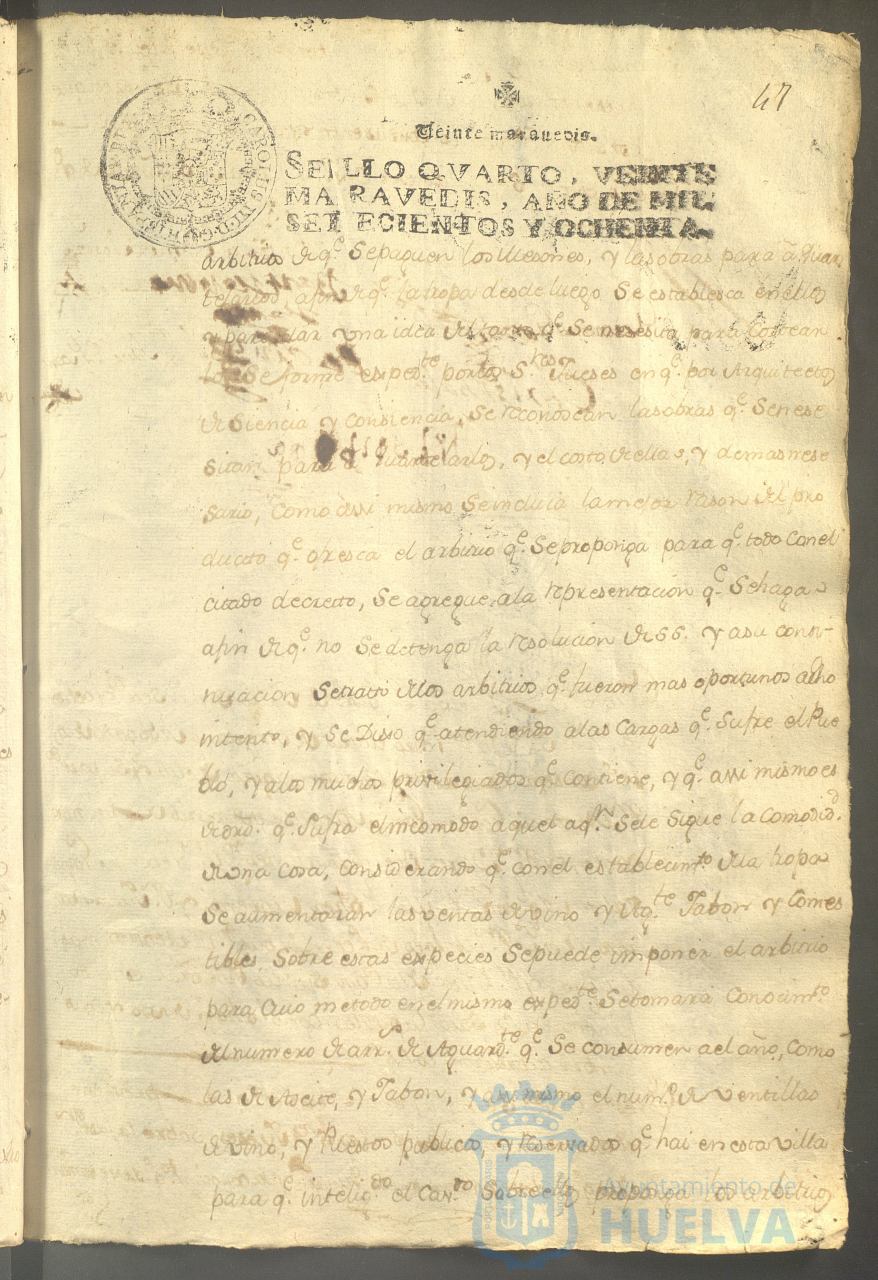 47
CAROLUS III D G HISPANIAR
Veinte maravedis.
SELLO QVARTO, VEINTE
MARAVEDIS, AÑO DE MIL
SETECIENTOS Y OCHENTA.
arbitrios de qe. Se paguen los Mesones, y las obras para aQuar
telarlos, afin de qe. la tropa desde luego Se establesca en ellos
y para dar una idea de qe. Se nesesita para Costear
los Se forme expedte. por los Sres. Jueses en qe. por Arquitectos
de Siencia y Consiencia, Se reconoscan las obras qe. Se nese
sitan para aQuartelarlos, y el costo de ellas, y demas nese
sario, Como assi mismo Se incluia la mejor rason del pro
ducto qe. ofresca el arbitrio qe. Se proponga para qe. todo Con el
citado decretto, Se agregue, ala representacion qe. Se haga
afin de qe. no Se detenga la resolucion de SS. y a su conti-
nuacion Se tratto de los arbitrios qe. fueron mas oportunos al
intento, y Se Dixo qe. atendiendo a las Cargas qe. Sufre el Pue
blo, y alos muchos privilegiados qe. Contiene, y qe. assi mismo es
de ord. qe. Sufra el incomodo aquel aqn. Se le Sigue la Comodid.
de una Cosa, Considerando qe. con el establecimto. de la tropa
Se aumentaran las ventas de vino y Agte. Jabon y Comes
tibles, Sobre estas expecies Se puede imponer el arbitrio
para Cuio metodo en el mismo expedte. Se tomará Conocimto.
del numero de arrs. de Aguardte. qe. Se consumen a el año, Como
las de Aceite, y Jabon, y assi mismo el numo. de Ventillas
de vino, y Puestos publicos, y reservados qe. hai en esta villa
para qe. inteligdo. el Cavdo. Sobre ellos proponga los arbitrios
Ayuntamiento de
HUELVA